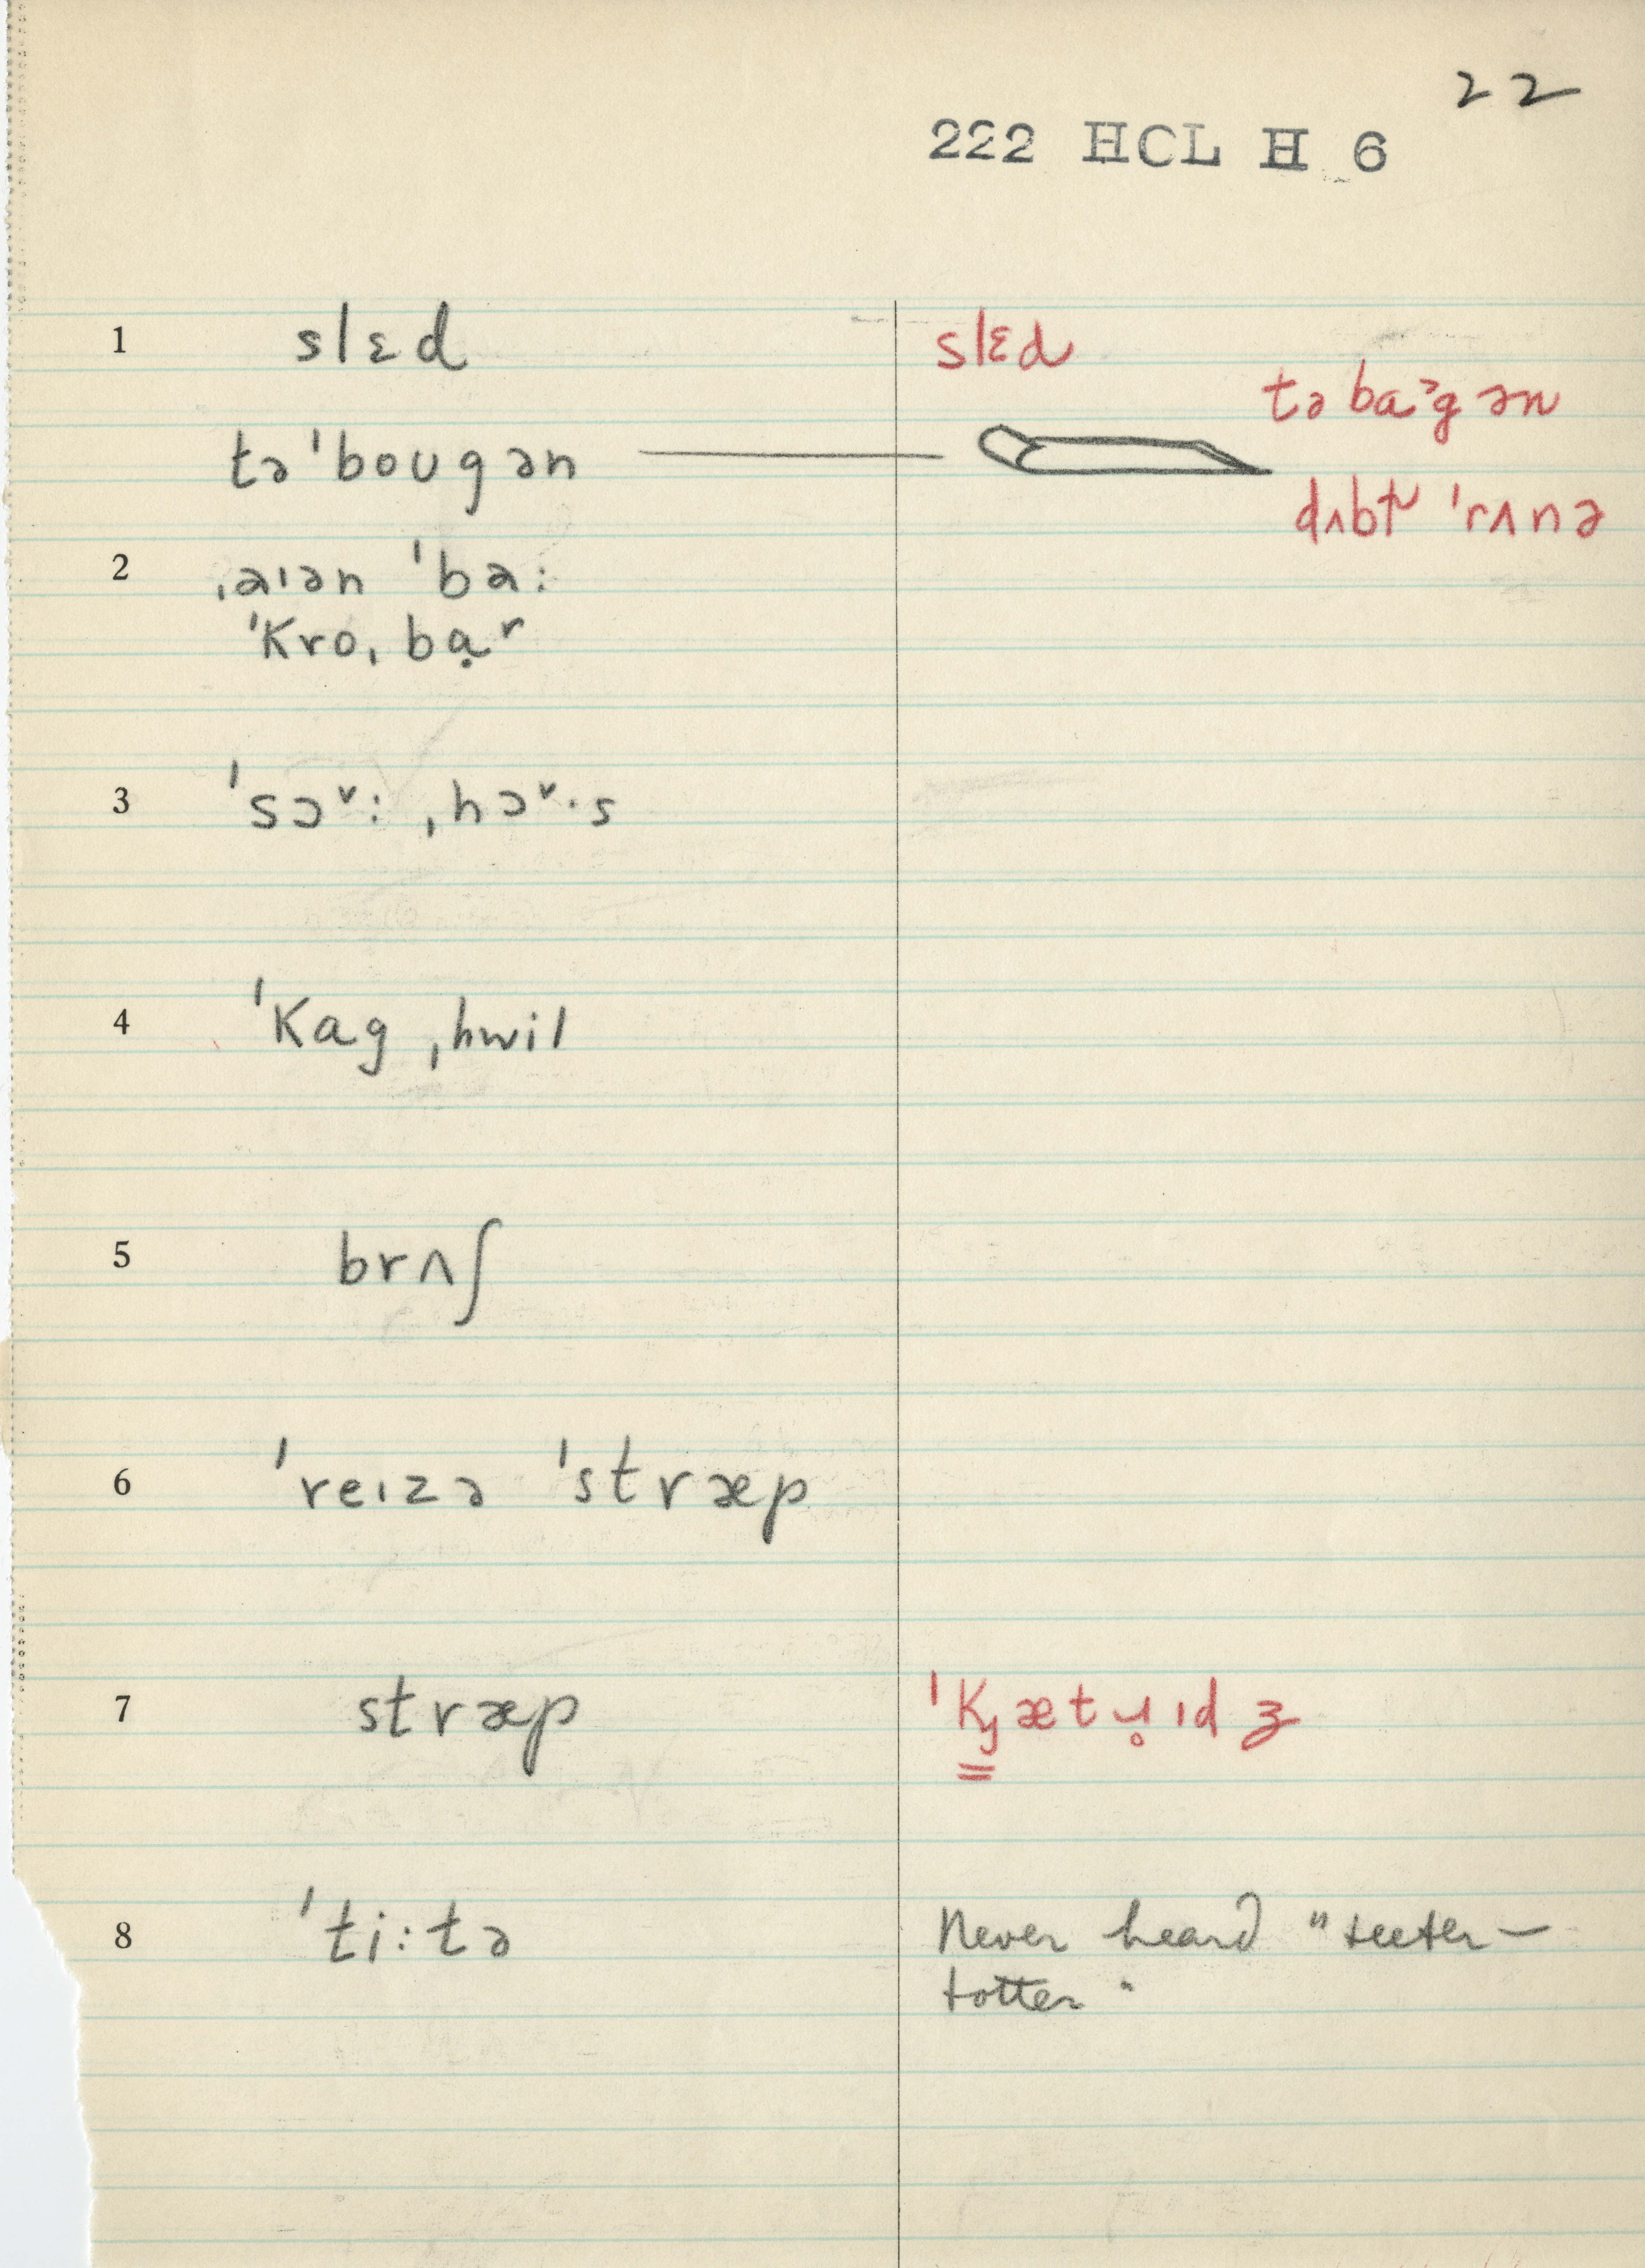 22
222 HCL H 6
1 slɛd slɛd
təbaˀgən
təˈbougən
dʌbḷ ˈrʌnə
2 ˌaɪən ˈba:
ˈKroˌbạʳ
3 ˈsɔˇ: ˌhɔˇ·s
4 ˈKag ˌhwil
5 brʌʃ
6 ˈreɪzə ˈstræp
7 stræp ˈKȷætɹ̥ɪdʒ
8 ˈti:tə Never heard "teeter-
totter"